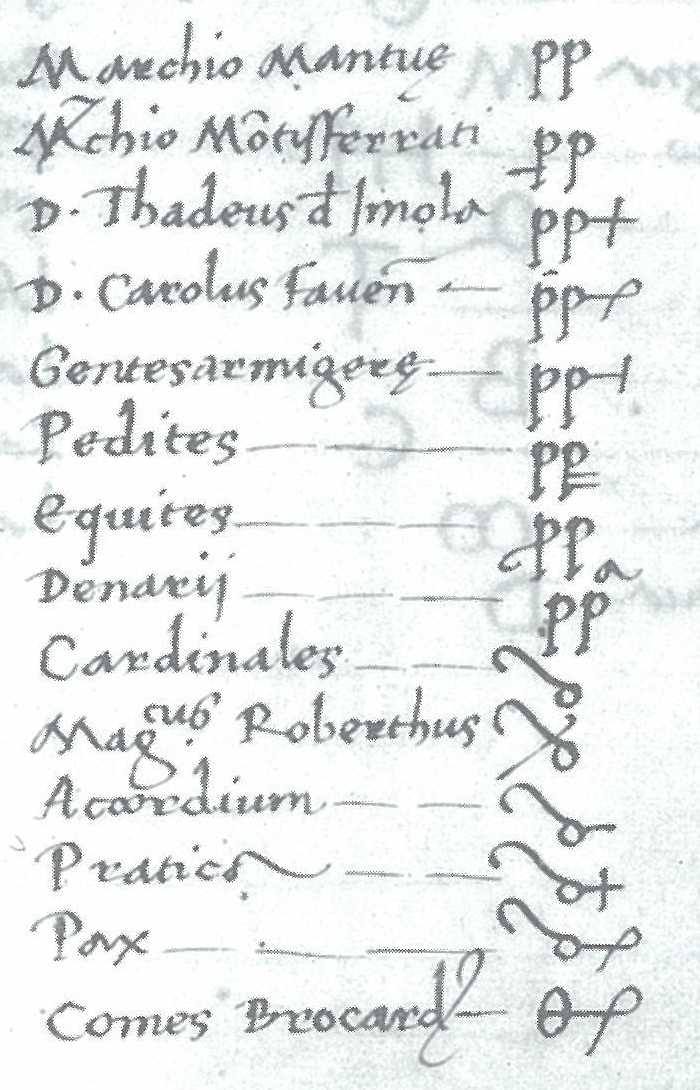 Marchio Mantuę pp
Mchio Mõtisfferrati pp
D. Thadeus đ Imola pp+
D. Carolus Fauen̄ — pp
Gentesarmigerę — pp
Pedites — — pp
Equites — — — pp
Denarij — — — ppa
Cardinales — —
Mag.cus Roberthus
Acordium — —
Pratica — —
Pax — — —
Comes Brocard — θ